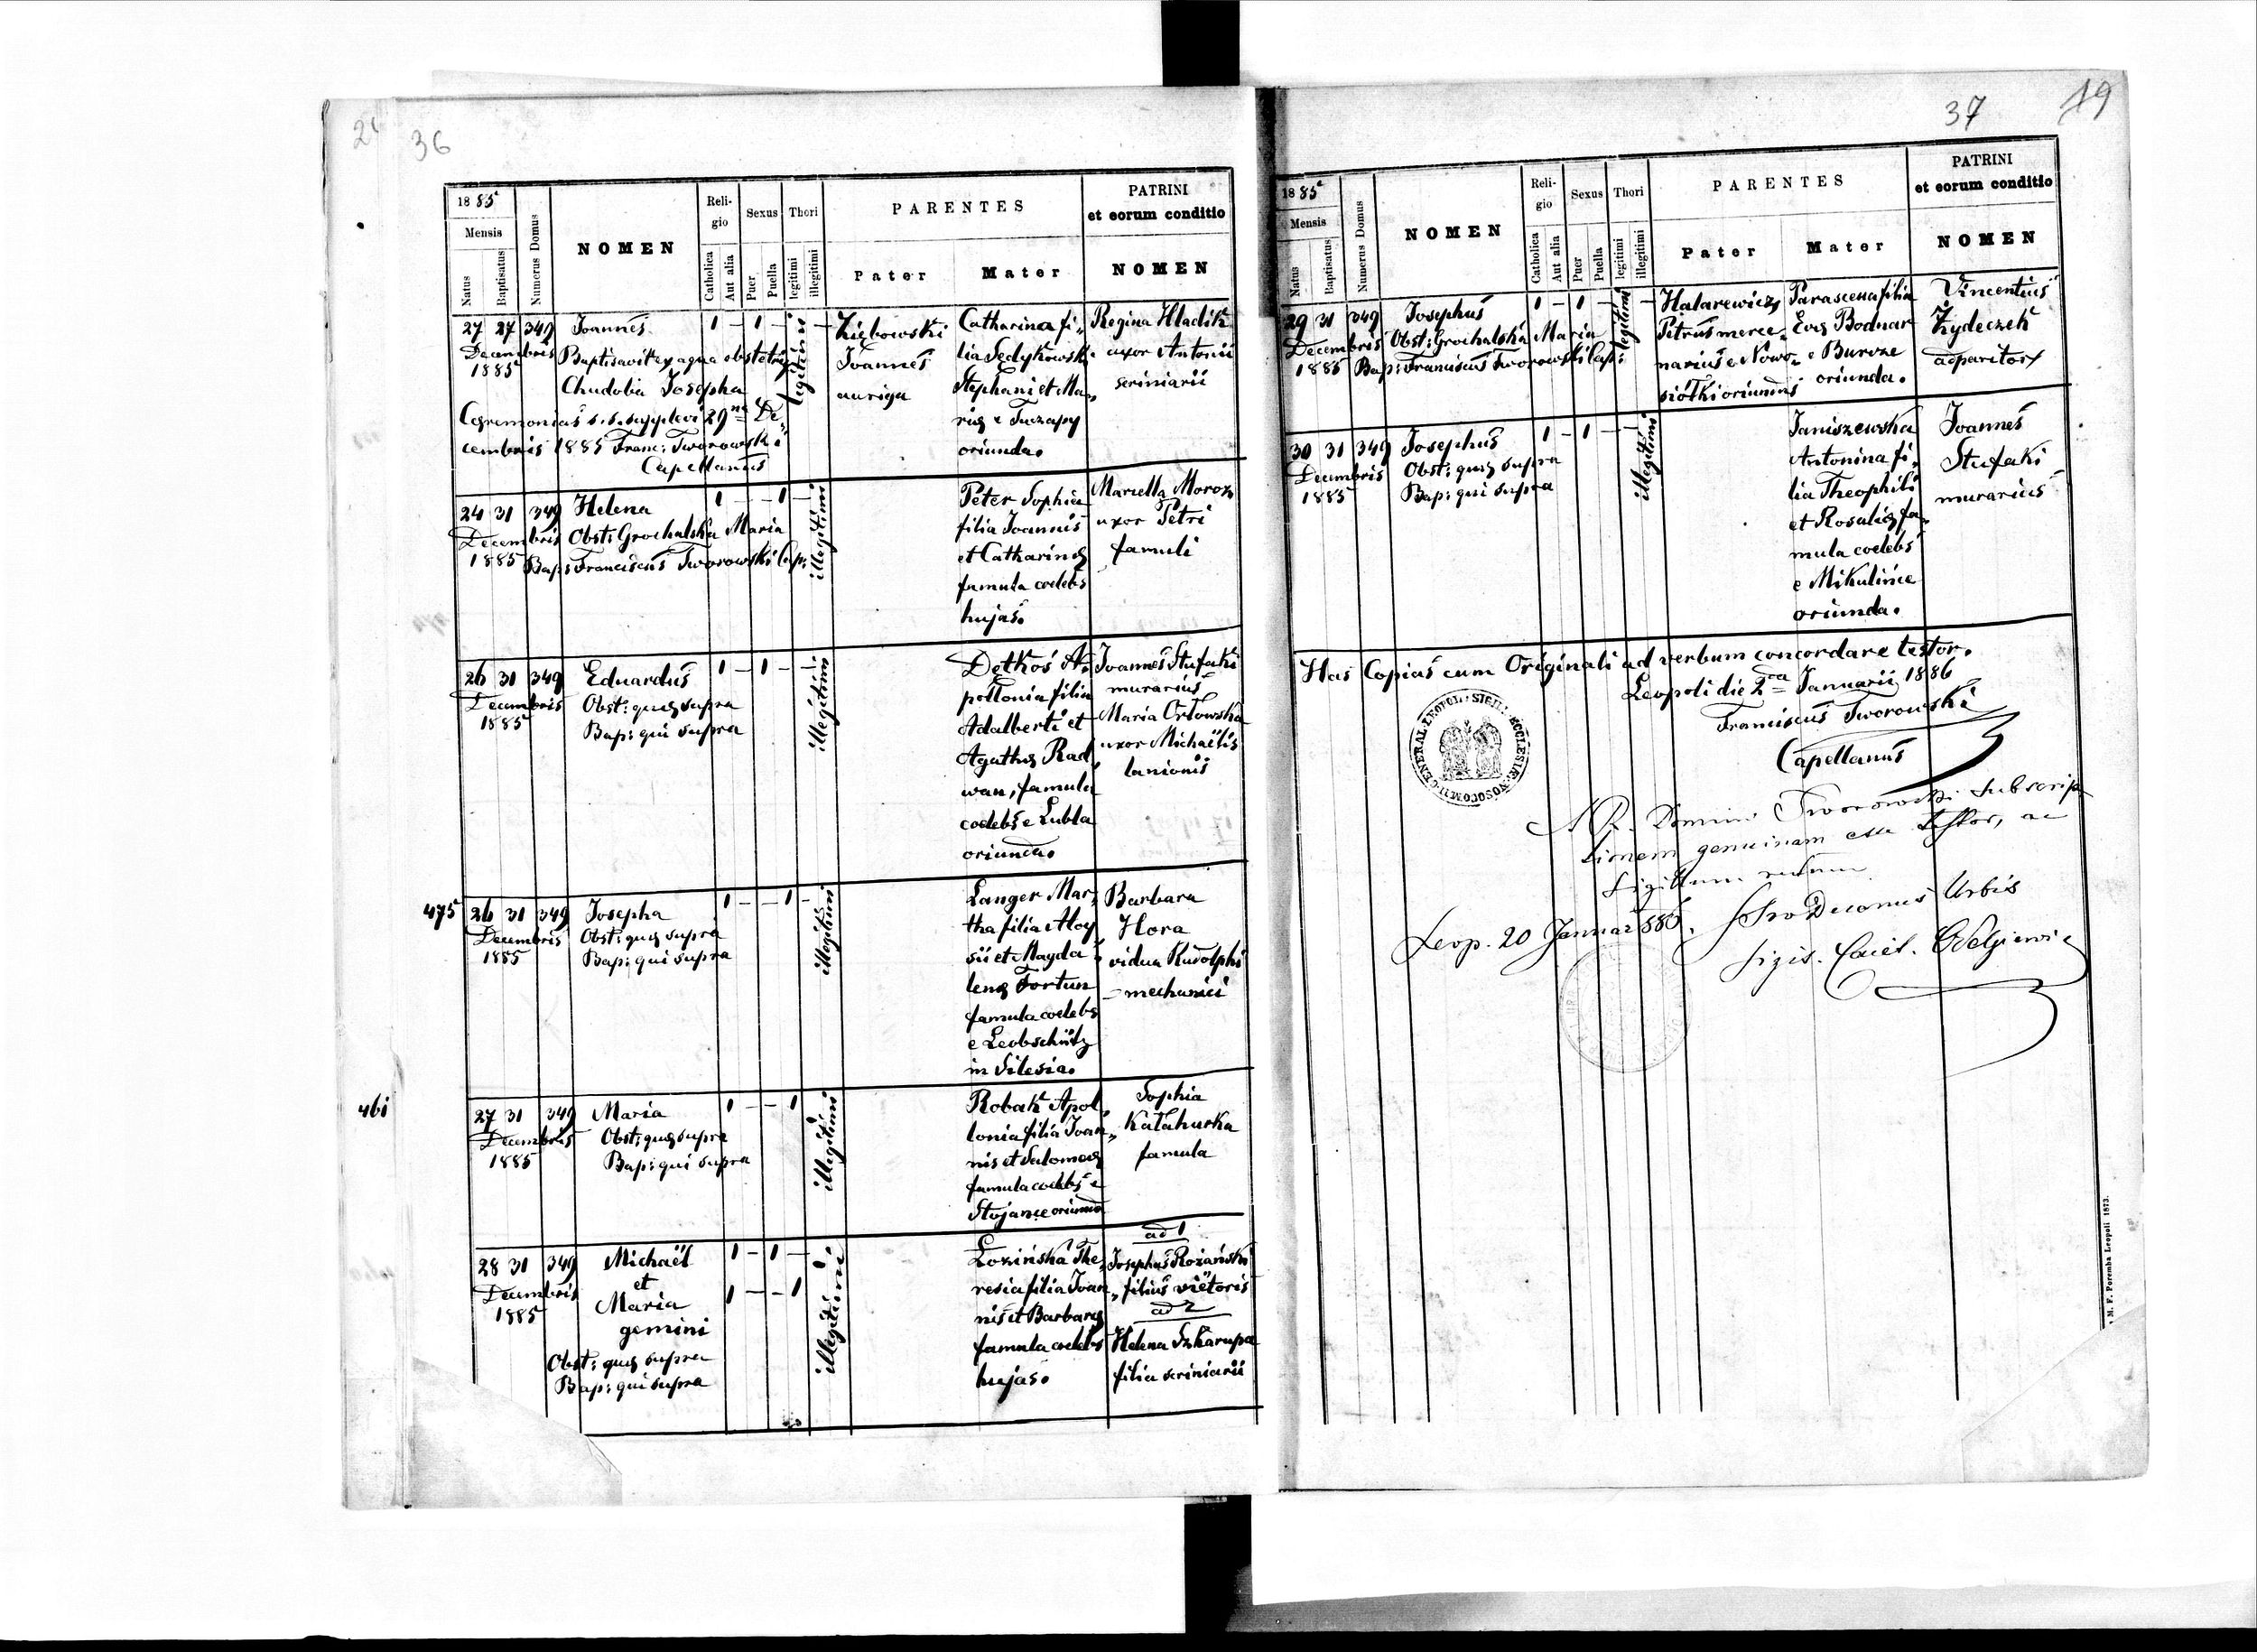 36
1885
Mensis
Natus
Baptisatus
Numerus Domus
NOMEN
Reli-
gio
Catholica
Aut alia
Sexus
Puer
Puella
Thori
legitimi
illegitimi
PARENTES
Pater
Mater
PATRINI
et eorum conditio
NOMEN
27 27 349
Decembris
1885
Joannes
Baptisavit ex aqua obstetrix
Chudoba Josepha
Cęremonias s. s. supplevi 29na De-
cembris 1885 Franc: Tworowski
Capellanus
1 - 1 - legitimi -
Joannes
auriga
Catharina fi-
lia Sedykowski
Stephani et Ma-
rię e Tuczapy
oriunda.
Regina Hladik
uxor Antonii
scriniarii
24 31 349
Decembris
1885
Helena
Obst: Grochalska Maria
Bap: Franciscus Tworowski Cap:
1 - - 1 - illegitimi
Peter Sophia
filia Joannis
et Catharinę
famula coelebs
hujas.
Marcella Moroz
uxor Petri
famuli
26 31 349
Decembris
1885
Eduardus
Obst: quę supra
Bap: qui supra
1 - 1 - - illegitimi
Detkoś A-
pollonia filia
Adalberti et
Agathę Rad-
wan, famula
coelebs e Lubla
oriunda.
Joannes Stufaki
murarius
Maria Orłowska
uxor Michaëlis
lanionis
475
26 31 349
Decembris
1885
Josepha
Obst: quę supra
Bap: qui supra
1 - - 1 - illegitimi
Langer Mar-
tha filia Aloy-
sii et Magda-
lenę Fortun
famula coelebs
e Leobschütz
in Silesia.
Barbara
Hora
vidua Rudolphi
mechanici
461
27 31 349
Decembris
1885
Maria
Obst: quę supra
Bap: qui supra
1 - - 1 illegitimi
Robak Apol-
lonia filia Joan-
nis et Salomeę
famula coelebs e
Stojance oriunda
Sophia
Kałahurka
famula
28 31 349
Decembris
1885
Michaël
et
Maria
gemini
Obst: quę supra
Bap: qui supra
1 - 1 -
1 - - 1
illegitimi
Łozińska The-
resia filia Joan-
nis et Barbarę
famula coelebs
hujas.
ad 1
Josephus Rożański
filius viëtoris
ad 2
Helena Szkarupa
filia scriniarii
37
19
1885
Mensis
Natus
Baptisatus
Numerus Domus
NOMEN
Reli-
gio
Catholica
Aut alia
Sexus
Puer
Puella
Thori
legitimi
illegitimi
PARENTES
Pater
Mater
PATRINI
et eorum conditio
NOMEN
29 31 349
Decembris
1885
Josephus
Obst: Grochalska Maria
Bap: Franciscus Tworowski Cap:
1 - 1 - legitimi -
Halarewicz
Petrus merce-
narius e Nowo-
siółki oriundus
Parascewa filia
Evę Bodnar
e Burcze
oriunda.
Vincentius
Żydeczek
apparitor
30 31 349
Decembris
1885
Josephus
Obst: quę supra
Bap: qui supra
1 - 1 - - illegitimi
Janiszewska
Antonina fi-
lia Theophili
et Rosalię fa-
mula coelebs
e Mikulińce
oriunda.
Joannes
Stufaki
murarius
Has Copias cum Originali ad verbum concordare testor.
Leopoli die 2da Januarii 1886
Franciscus Tworowski
Capellanus
GENERAL. LEOPOL. SIGIL. ECCLESIÆ NOSOCOMII
Domini Tworowski subscrip
tionem genuinam esse testor, ac
sigillum
Leop. 20 Januar 886. ProDecanus Urbis
M. F. Poremba Leopoli 1873.